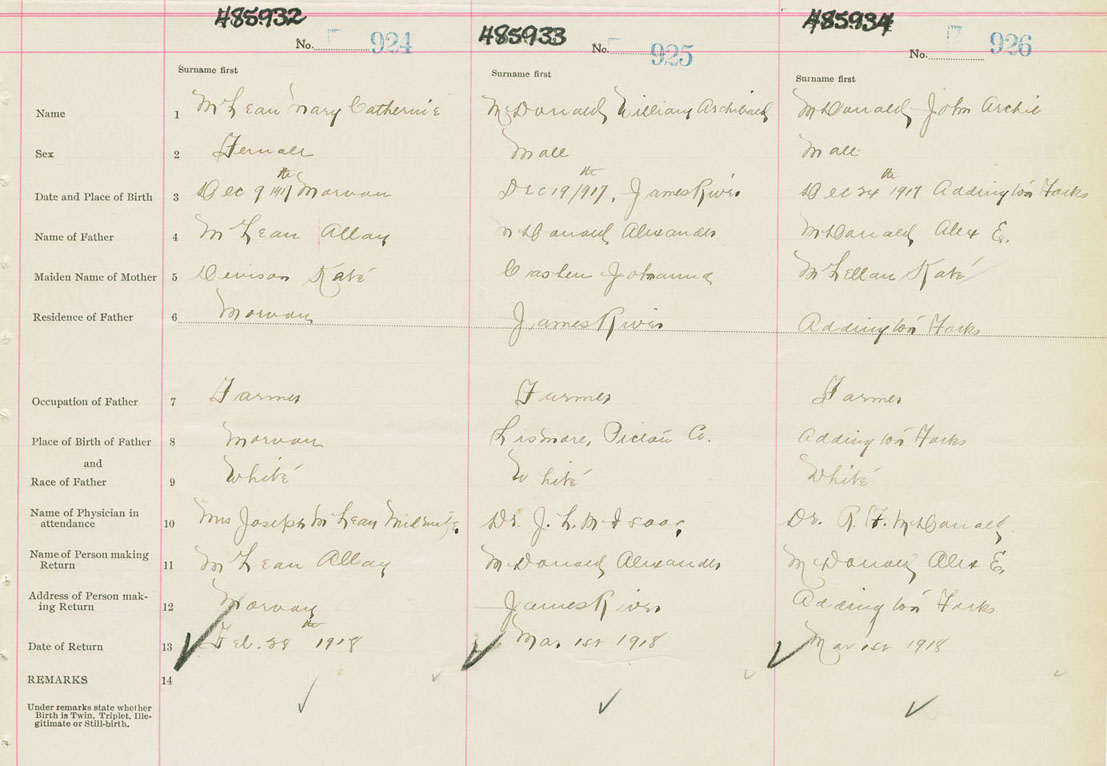 485932 485933 485934
No. 924 No. 925 No. 926
Surname first Surname first Surname first
Name 1 McLean Mary Catherine McDonald William Archibald McDonald John Archie
Sex 2 Female Male Male
Date and Place of Birth 3 Dec 9th 1917 Morvan Dec 19th/917, James River Dec 24th 1917 Addington Forks
Name of Father 4 McLean Allan McDonald Alexander McDonald Alex E.
Maiden Name of Mother 5 Kate Johanna McLellan Kate
Residence of Father 6 Morvan James River Addington Forks
Occupation of Father 7 Farmer Farmer Farmer
Place of Birth of Father 8 Morvan Lismore, Pictou Co. Addington Forks
and
Race of Father 9 White White White
Name of Physician in
attendance 10 Mrs Joseph McLean Midwife. Dr. J. L. McIsaac Dr. R. F. McDonald
Name of Person making
Return 11 McLean Allan McDonald Alexander McDonald Alex E.
Address of Person mak-
ing Return 12 Morvan James River Addington Forks
Date of Return 13 Feb. 28th 1918 Mar 1st 1918 Mar 1st 1918
REMARKS 14
Under remarks state whether
Birth is Twin, Triplet, Ille-
gitimate or Still-birth.